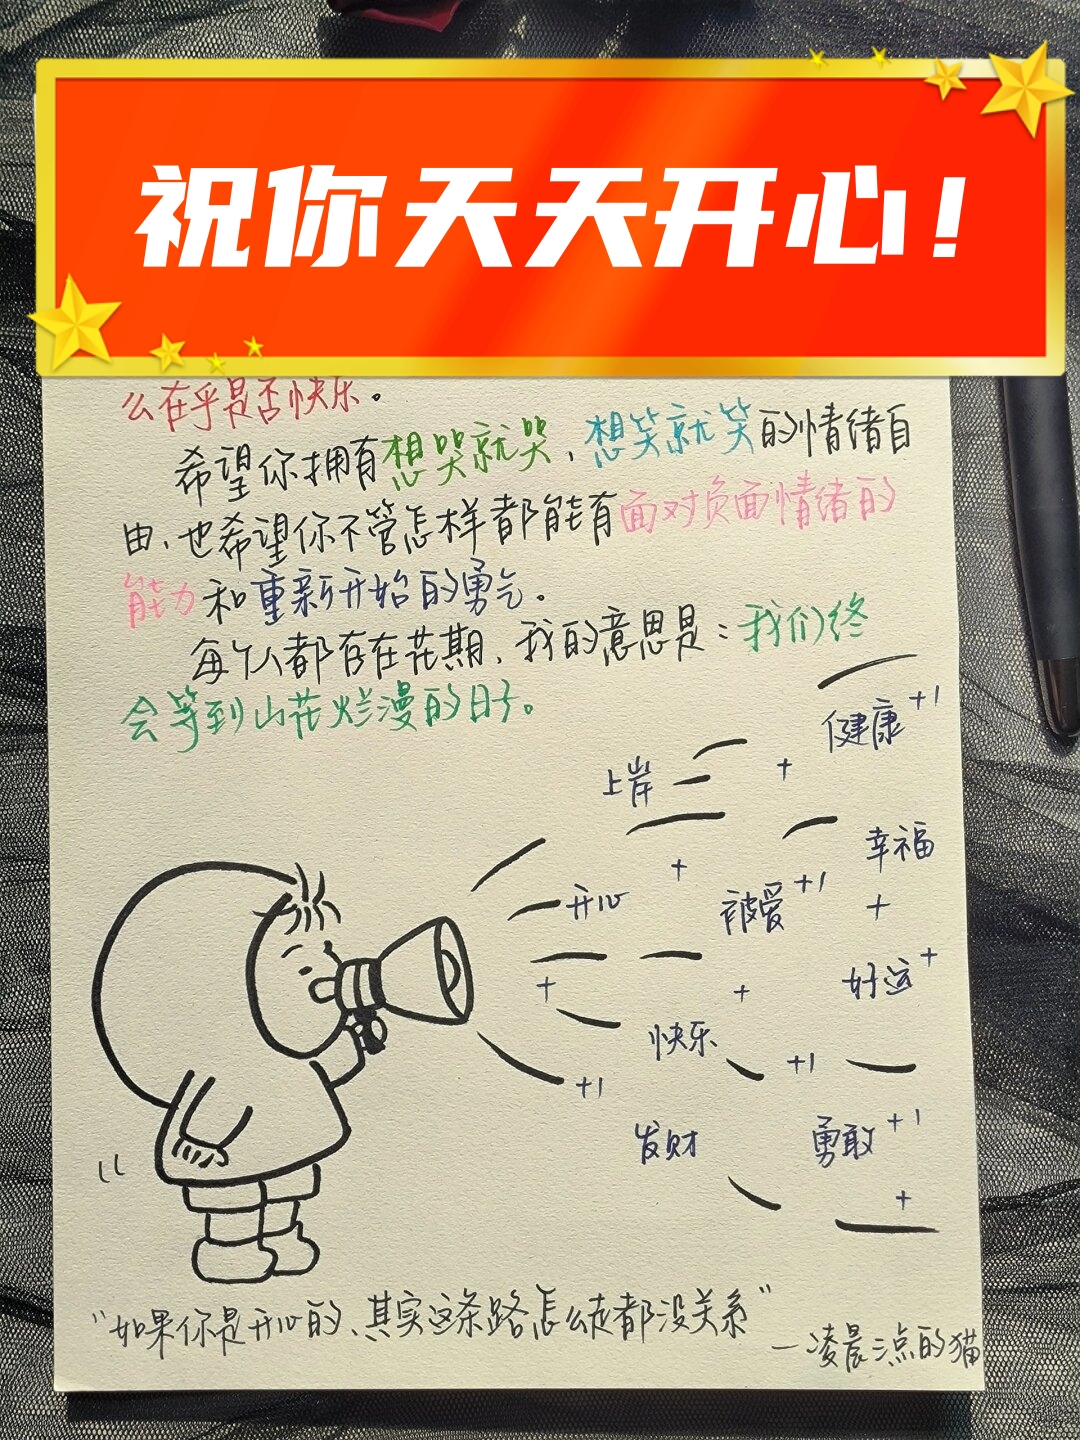 祝你天天开心!
么在乎是否快乐。
希望你拥有想哭就哭、想笑就笑的情绪自
由、也希望你不管怎样都能有面对负面情绪的
能力和重新开始的勇气。
每个人都存在花期、我的意思是:我们终
会等到山花烂漫的日子。
健康+1
上岸
+
幸福
+
开心
被爱+1
+
好运+
+
+
快乐
+1
+1
发财
勇敢+1
+
“如果你是开心的、其实这条路怎么走都没关系”
—凌晨三点的猫